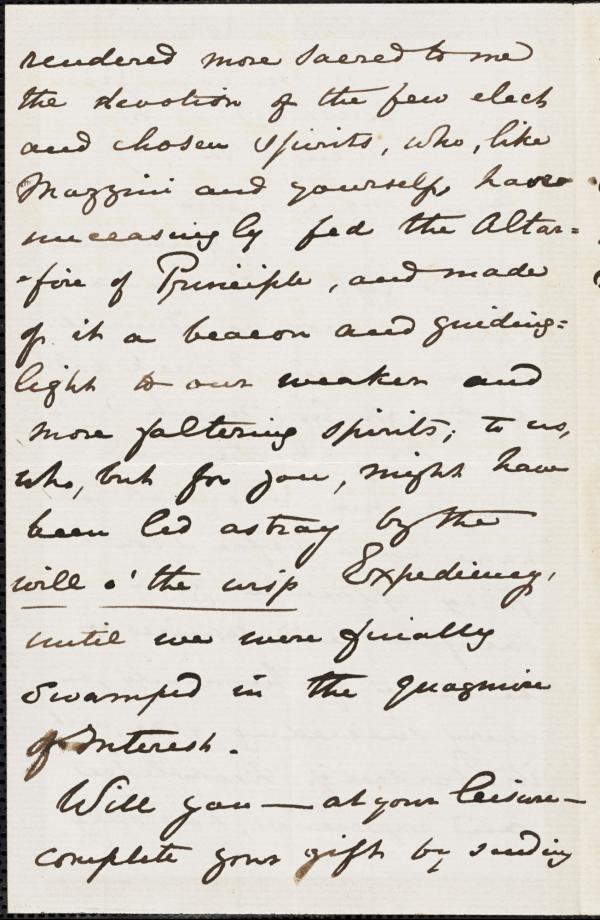 rendered more sacred to me
the devotion of the few elect
and chosen spirits, who, like
Mazzini and yourself, have
unceasingly fed the Altar=
-fire of Principle, and made
of it a beacon and guiding=
light to our weaker and
more faltering spirits; to us,
who, but for you, might have
been led astray by the
will o' the wisp Expediency,
until we were finally
swamped in the quagmire
of Interest.
Will you — at your leisure —
complete your gift by sending